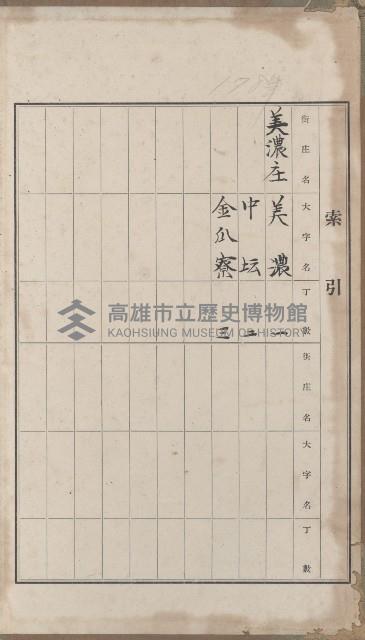 索引
街庄名 大字名 丁數 街庄名 大字名 丁數
美濃庄 美濃 一
中坛 二
金瓜寮 三
高雄市立歷史博物館
KAOHSIUNG MUSEUM OF HISTORY